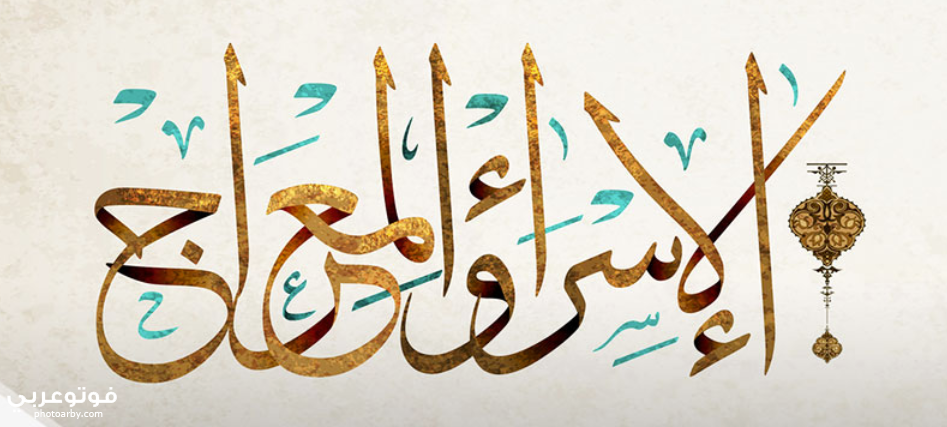 الإسراء والمعراج
فوتوعربي
photoarby.com